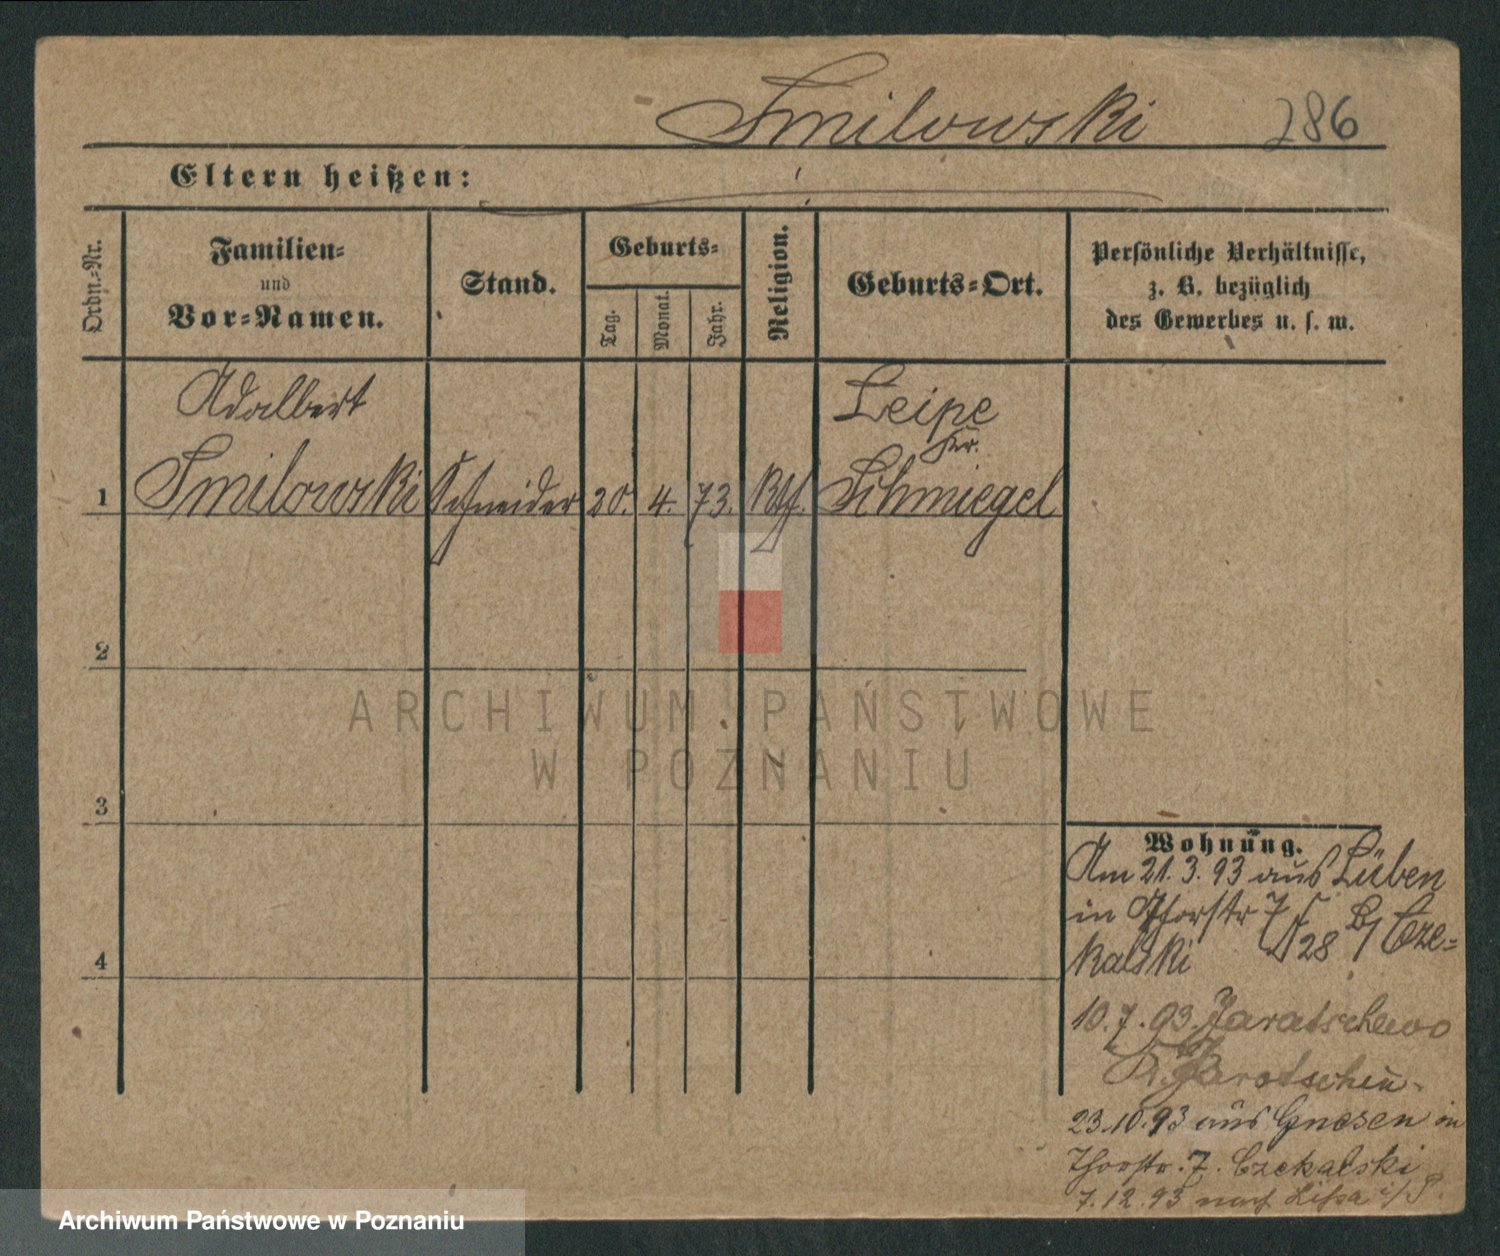 Smilowski 286
Eltern heißen:
Ordn.-Nr.
Familien-
und
Vor-Namen.
Stand.
Geburts-
Tag.
Monat.
Jahr.
Religion.
Geburts-Ort.
Persönliche Verhältnisse,
z. B. bezüglich
des Gewerbes u. s. w.
Adalbert Leipe
Kr.
1 Smilowski Schneider 20. 4. 73. Kth. Schmiegel
2
3
4
Wohnung.
Am 21.3.93 aus Lüben
in Thorstr 7 28 b/ Cze-
kalski
10.7.93 Jaratschewo
K. Jarotschin
23.10.93 aus Gnesen in
Thorstr. 7. Czekalski
7.12.93 nach Lissa i/P.
ARCHIWUM PAŃSTWOWE
W POZNANIU
Archiwum Państwowe w Poznaniu